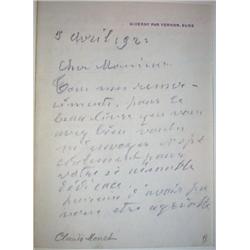 GIVERNY PAR VERNON, EURE
avril 192
Cher Monsieur
Tous mes remer-
ciements, pour le
beau livre que vous
avez bien voulu
m'envoyer et spé
cialement pour
votre si aimable
dédicace
puisque j'avais pu
vous être agréable
Claude Monet